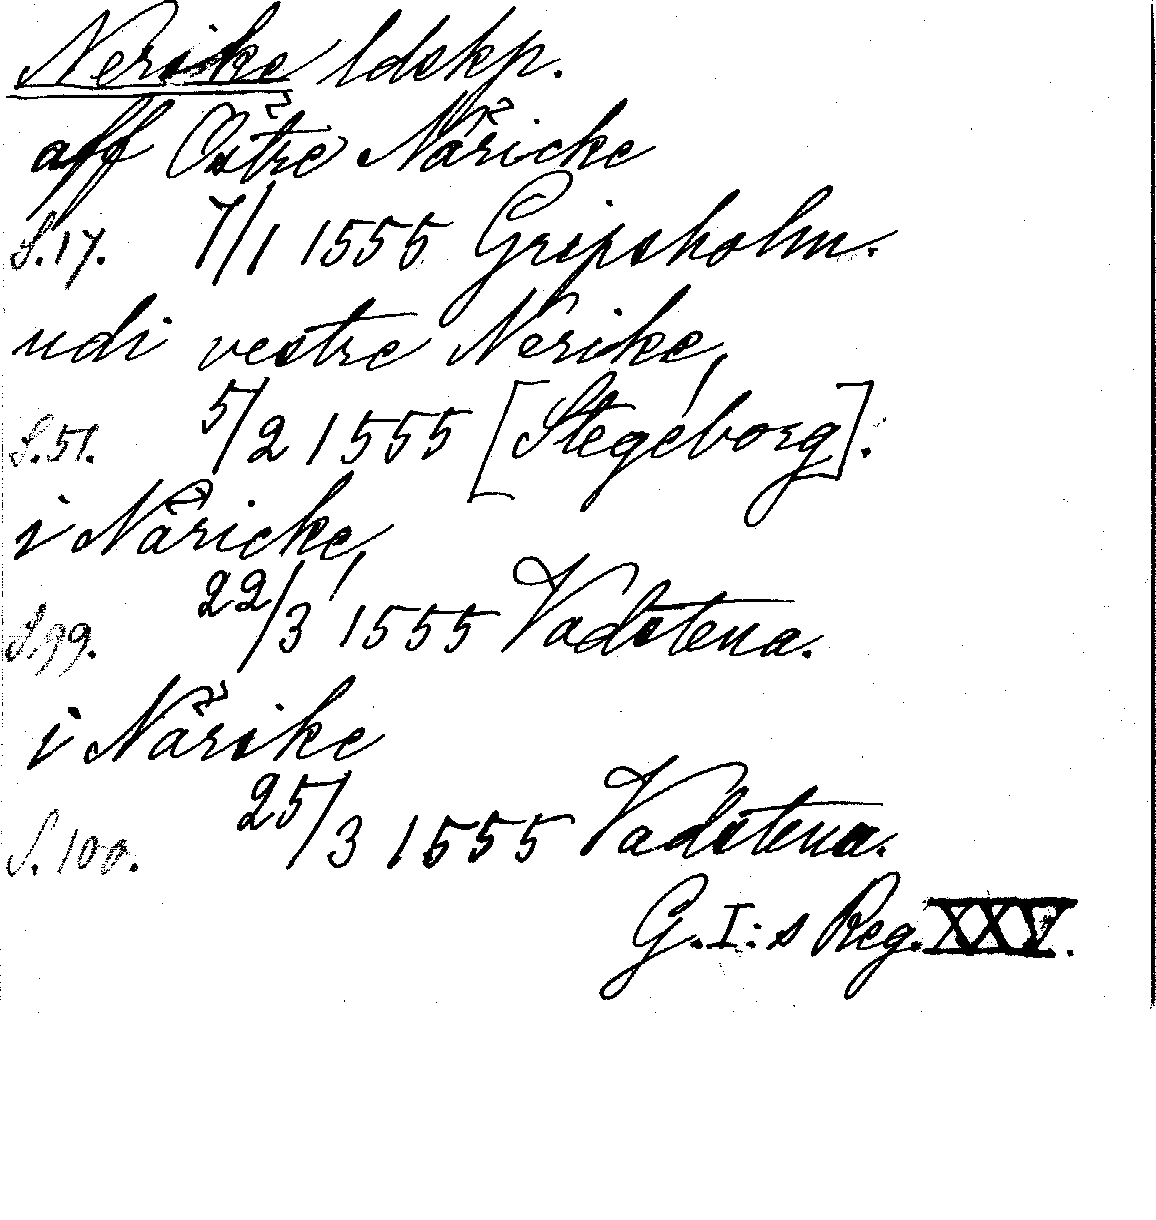 Nerike ldskp.
aff Östre Näricke
S.17. 7/1 1555 Gripsholm.
udi vestre Nerike,
S.51. 5/2 1555 [Stegeborg].
i Näricke,
S.99. 22/3 1555 Vadstena.
i Närike
S.100. 25/3 1555 Vadstena.
G.I:s Reg. XXV.